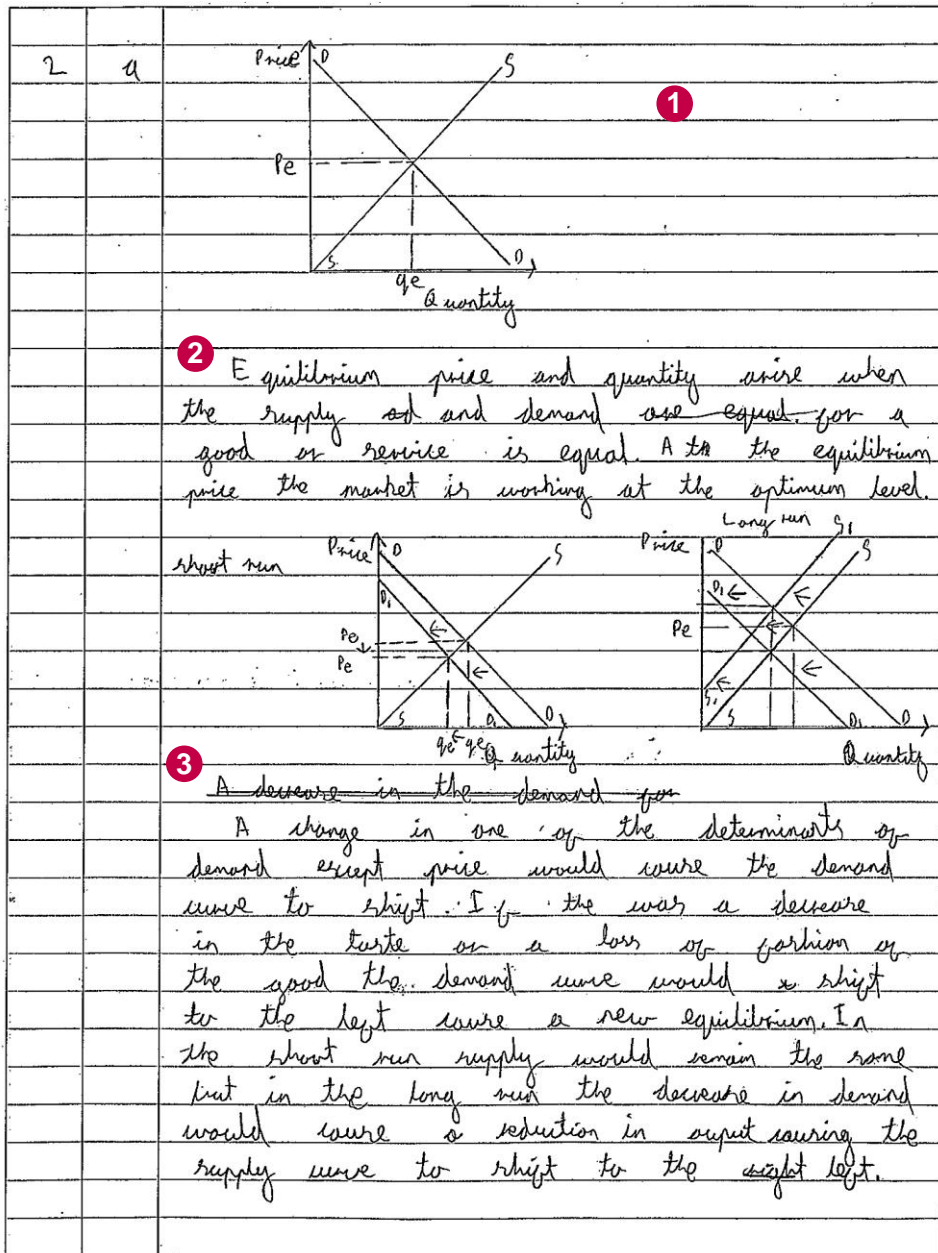 2 a
Price D S
1
Pe
S D
qe
Quantity
2
Equilibrium price and quantity arise when
the supply od and demand are equal. for a
good or service is equal. A th the equilibrium
price the market is working at the optimum level.
short run
Price D S
D1
Pe
Pe
S D1 D
qe qe
Quantity
Long run
Price D S1 S
D1
Pe
S1 S D1 D
Quantity
3
A decrease in the demand for
A change in one of the determinants of
demand except price would cause the demand
curve to shift. If the was a decrease
in the taste or a loss of fashion of
the good the demand curve would shift
to the left cause a new equilibrium. In
the short run supply would remain the same
but in the long run the decrease in demand
would cause a reduction in ouput causing the
supply curve to shift to the right left.